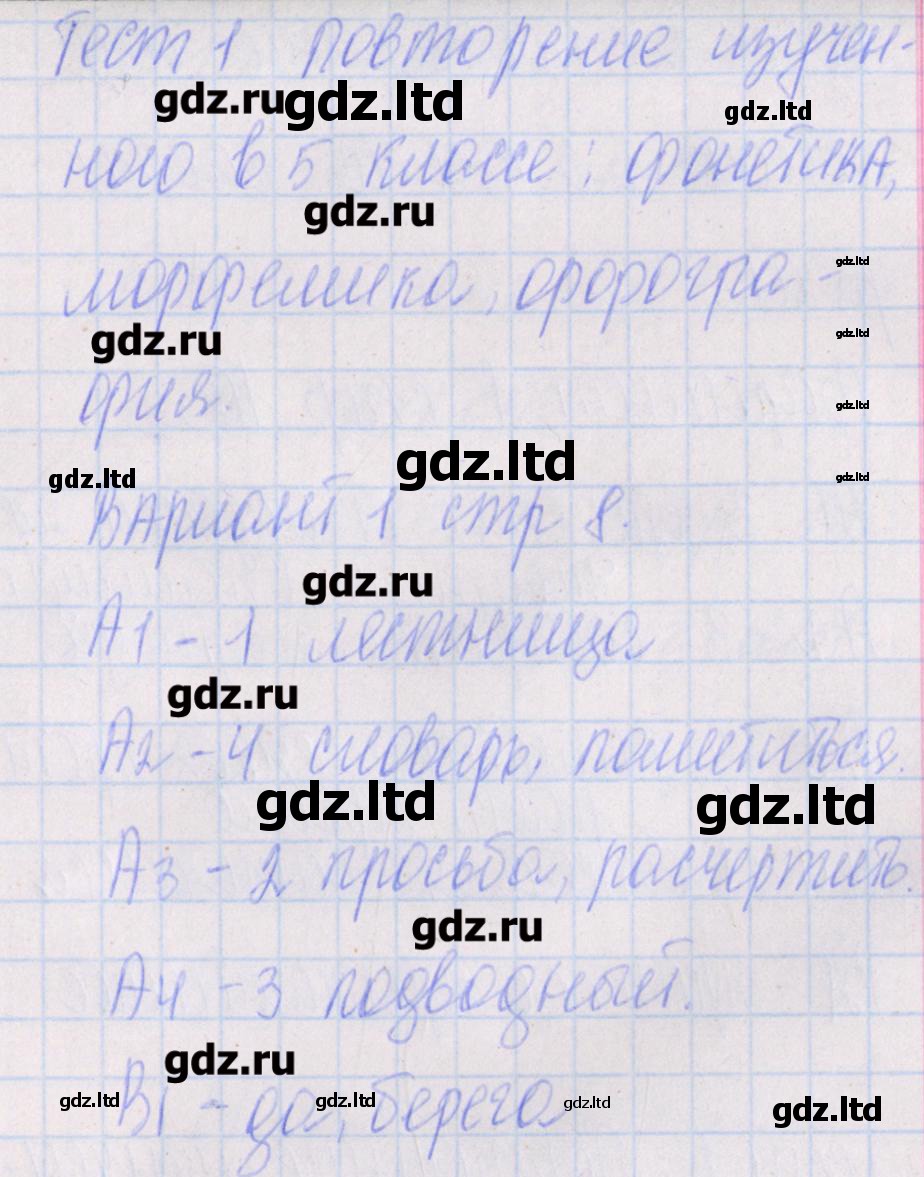 Тест 1 Повторение изучен-
gdz.ru gdz.ltd gdz.ltd
ного в 5 классе: фонетика,
gdz.ru
морфемика, орфогра-
gdz.ltd
gdz.ru gdz.ltd
фия.
gdz.ltd
gdz.ltd gdz.ltd gdz.ltd
Вариант 1 стр 8.
gdz.ru
А1 - 1 лестница
gdz.ru
А2 - 4 словарь, поместиться.
gdz.ltd gdz.ltd
А3 - 2 просьба, расчертить.
gdz.ru
А4 - 3 подводный.
gdz.ru
gdz.ltd gdz.ltd gdz.ltd gdz.ltd
В1 - да, берега